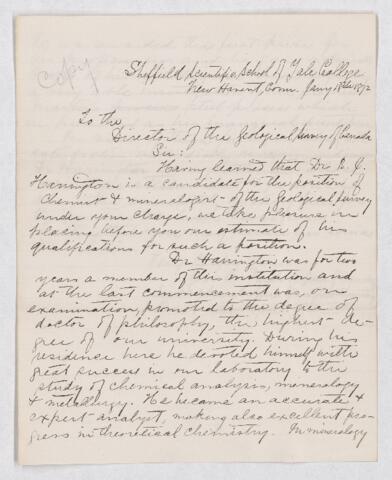 Copy
Sheffield Scientific School of Yale College
New Haven, Conn. Jany 18th 1872
To the
Director of the Geological Survey of Canada
Sir:
Having learned that Dr B. J.
Harrington is a candidate for the position of
chemist & mineralogist of the Geological Survey
under your charge, we take pleasure in
placing before you our estimate of his
qualifications for such a position.
Dr Harrington was for two
years a member of this institution and
at the last commencement was, on
examination, promoted to the degree of
doctor of philosophy, the highest de-
gree of our university. During his
residence here he devoted himself with
great success in our laboratory to the
study of chemical analysis, mineralogy
& metallurgy. He became an accurate &
expert analyst, making also excellent pro-
gress in theoretical chemistry. In mineralogy